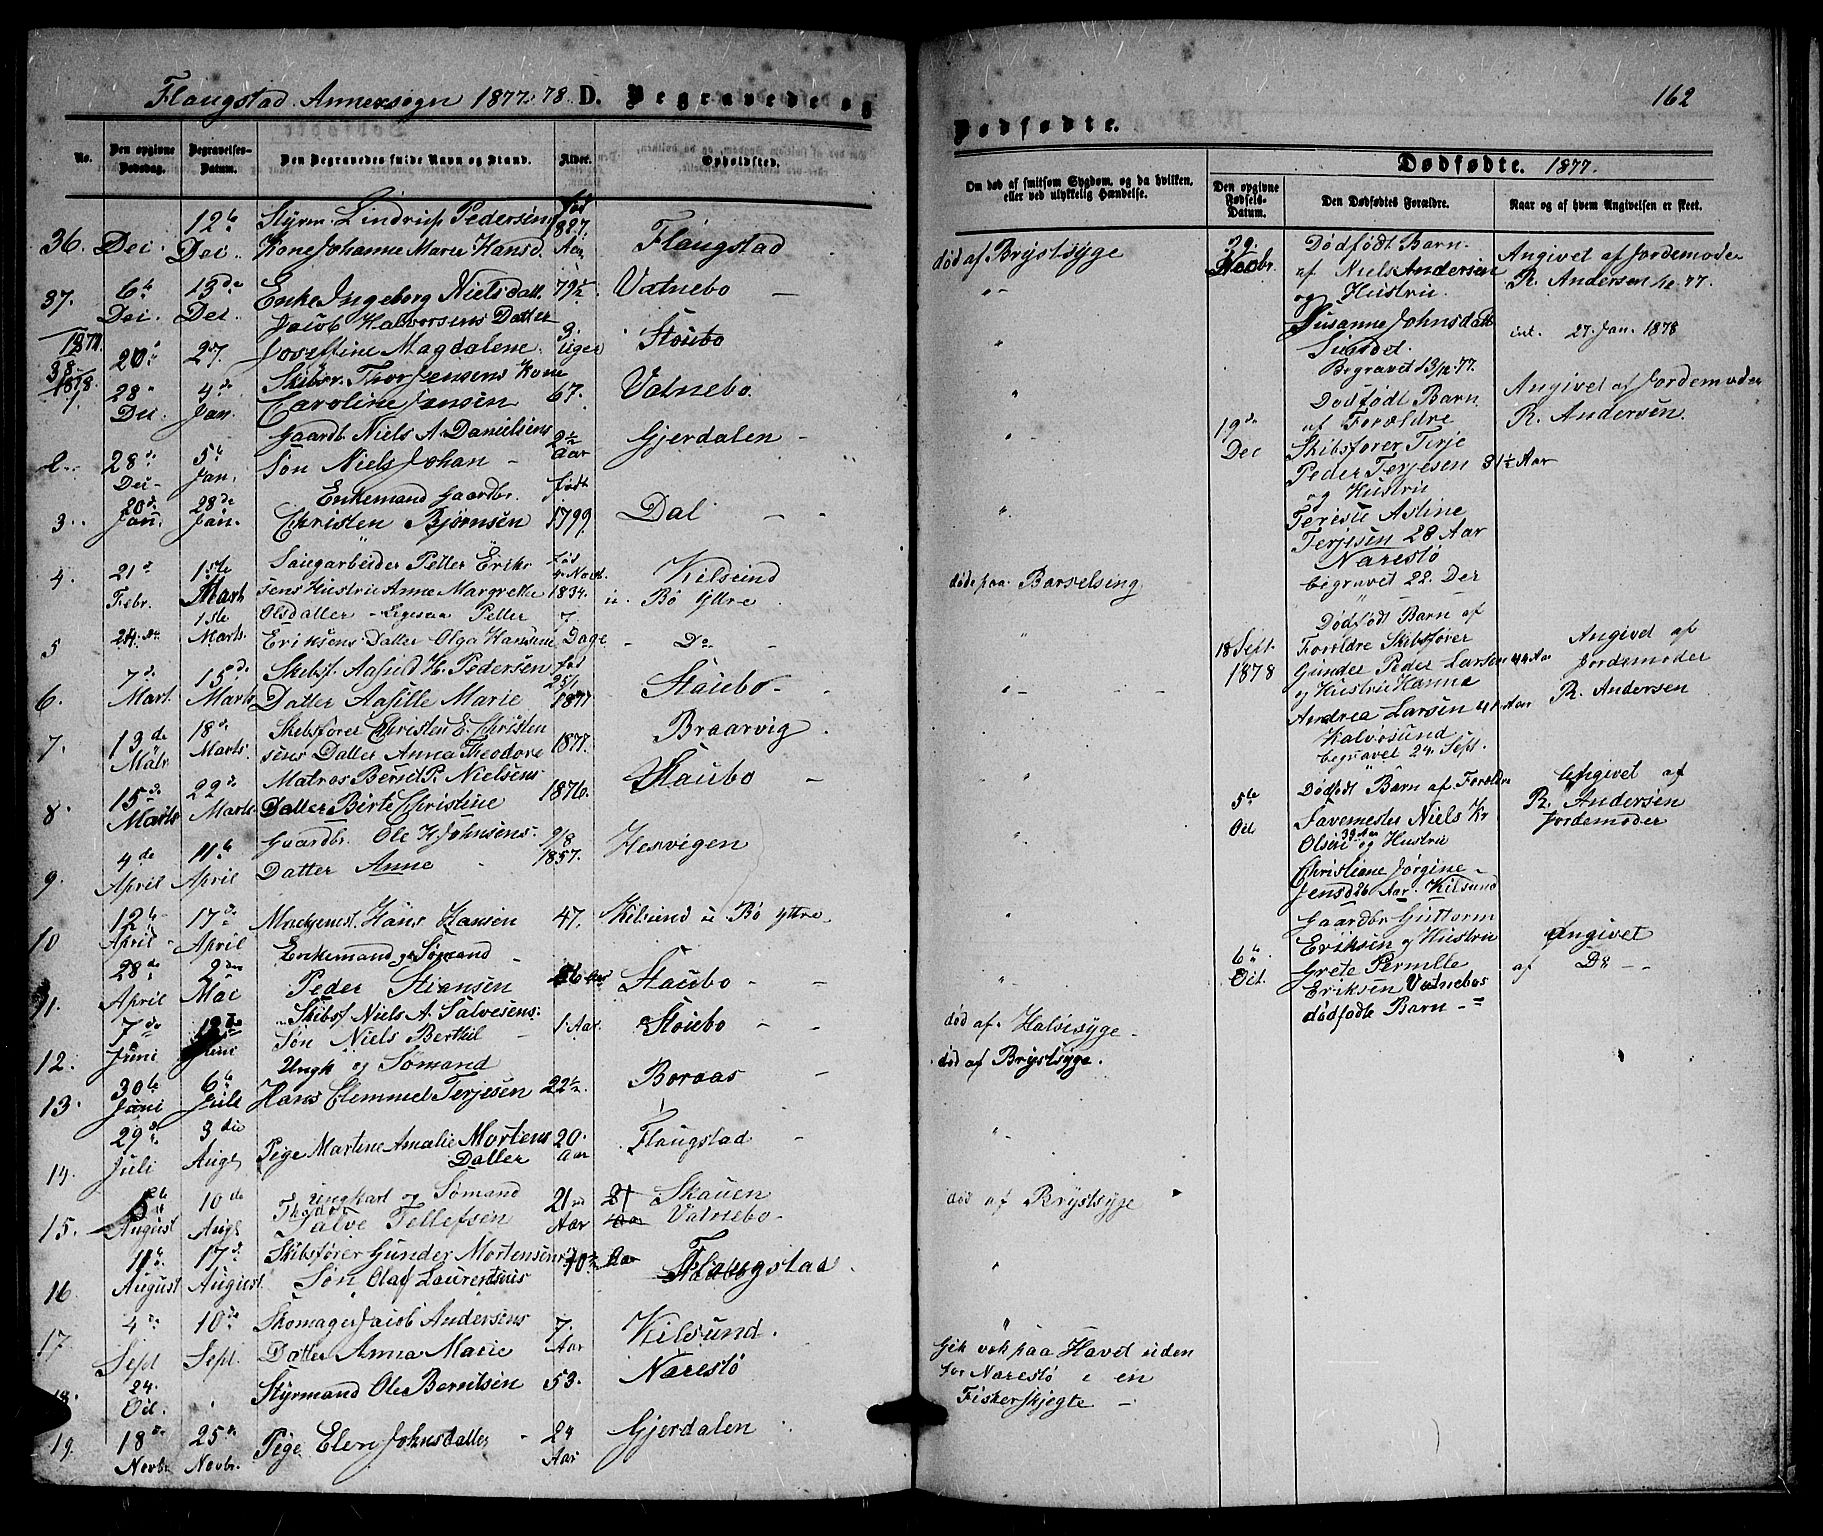 Flaugstad Annexsogn 1877-78. D. Begravede og
No.
Den opgivne Dødsdag.
Begravelses-Datum.
Den Begravedes fulde Navn og Stand.
Alder.
Opholdssted.
36. Dec. 12te Dec. Styrm. Pedersens Kone Johanne Marie Hansd. Fød 1827. Aar Flaugstad
37. 6te Dec. 13de Dec. Enke Ingeborg Nielsdatt. 79½ Vatnebo
1877 38. 20de 27. Jacob Halvorsens Datter Josefine Magdalene 3. Uger Staubo
1878. 1. 28 Dec. 4de Jan. Skibsr. Thor Jensens Kone Caroline Jensen 67. Vatnebo.
2. 28de Dec. 5te Jan. Gaardb. Niels A. Danielsens Søn Niels Johan 2½ Aar Gjerdalen
3. 20de Jan. 28de Jan. Enkemand Gaardbr. Christen Bjørnsen Født 1799. Dal
4. 21de Febr. 1ste Mart Saugarbeider Petter Eriksens Hustrue Anne Margrethe Olsdatter Fød 1834. Kilsund u. Bø Yttre
5 24de 1ste Marts Ligesaa Petter Eriksens Datter Olga Hansine 7 Dage Do
6. 7de Mart. 15de Marts Skibsf. H. Pedersen Datter Marie fød 25/1 1877 Staubo
7. 13de Mar 18de Marts. Skibsfører Christen E. Christensens Datter Anna Theodore 1877. Braarvig
8. 15de Marts 22de Marts Matros Bernt P. Nielsens Datter Birte Christine 1876. Staubo
9. 4de April 11te April Gaardbr. Ole K. Johnsens Datter Anne 9/8 1857. Hesvigen
10 12te April 17de April Hans Hansen 47. Kilsund u Bø Yttre
11. 28de April 2den Mai Enkemand og Sømand Peder Stiansen Staubo
12. 7de Juni 12de Juni Skibsf. Niels A. Salvesens Søn Niels Berthil 1 Aar Staubo
13. 30te Juni 6te Juli Ungk og Sømand Hans Clemmet Terjesen 22½ Boraas
14. 29de Juli 3die Aug. Pige Martine Amalie Mortens Datter 20. Aar Flaugstad
15. August 10de Aug. Ungkarl og Sømand Salve Tellefsen 21 Aar Skauen Vatnebo
16. 11te August 17de August Skibsfører Gunder Mortensens Søn Olaf Laurentius 10½ Aar Flaugstad
17. 4de Sept 10de Sept. Skomager Jacob Andersens Datter Anna Marie 7. Aar Kilsund.
18. 24. Oct. Styrmand Ole Berntsen 53. Narestø
19. 18de Novbr 25de Novbr. Pige Elen Johnsdatter 24 Aar Gjerdalen
162
Dødfødte.
Om død af smitsom Sygdom, og da hvilken, eller ved ulykkelig Hændelse.
død af Brystsyge
døde paa Barselseng
død af Halssyge
død af Brystsyge.
død af Brystsyge
Gik væk paa Havet uden
for Narestø i en
Fiskerskjøgte
Dødfødte. 1877.
Den opgivne Fødsels-Datum.
Den Dødfødtes Forældre.
Naar og af hvem Angivelsen er skeet.
29. Novbr. Dødfødt Barn
af Niels Andersen
og Hustru
Susanne Johnsdatt
Begravet 13/12 77.
Angivet af Jordemoder
R. Andersen
27. Jan. 1878
19de Dec Dødfødt Barn
af Forældre
Skibsfører Terje
Peder Terjesen 31½ Aar
og Hustru
Terese Astine
Terjesen 28 Aar
Narestø
begravet 22. Dec
Angivet af Jordemoder
R. Andersen
18 Sept. 1878 Dødfødt Barn af
Forældre Skibsfører
Gunder Peder Larsen 44 Aar
og Hustru Hanna
Andrea Larsen 41 Aar
Kalvøsund
begravet 24. Sept.
Angivet af
Jordemoder
R. Andersen
5te Oct Dødfødt Barn af Forældre
Niels Kr
Olsen 39 Aar og Hustru
Christiane Jørgine
Jensd 26 Aar. Kilsund
Angivet af
R. Andersen
Jordemoder
6te Oct. Gaardbr Guttorm
Eriksen og Hustru
Grete Pernille
Eriksen Vatnebos
dødfødte Barn
Angivet
af Do